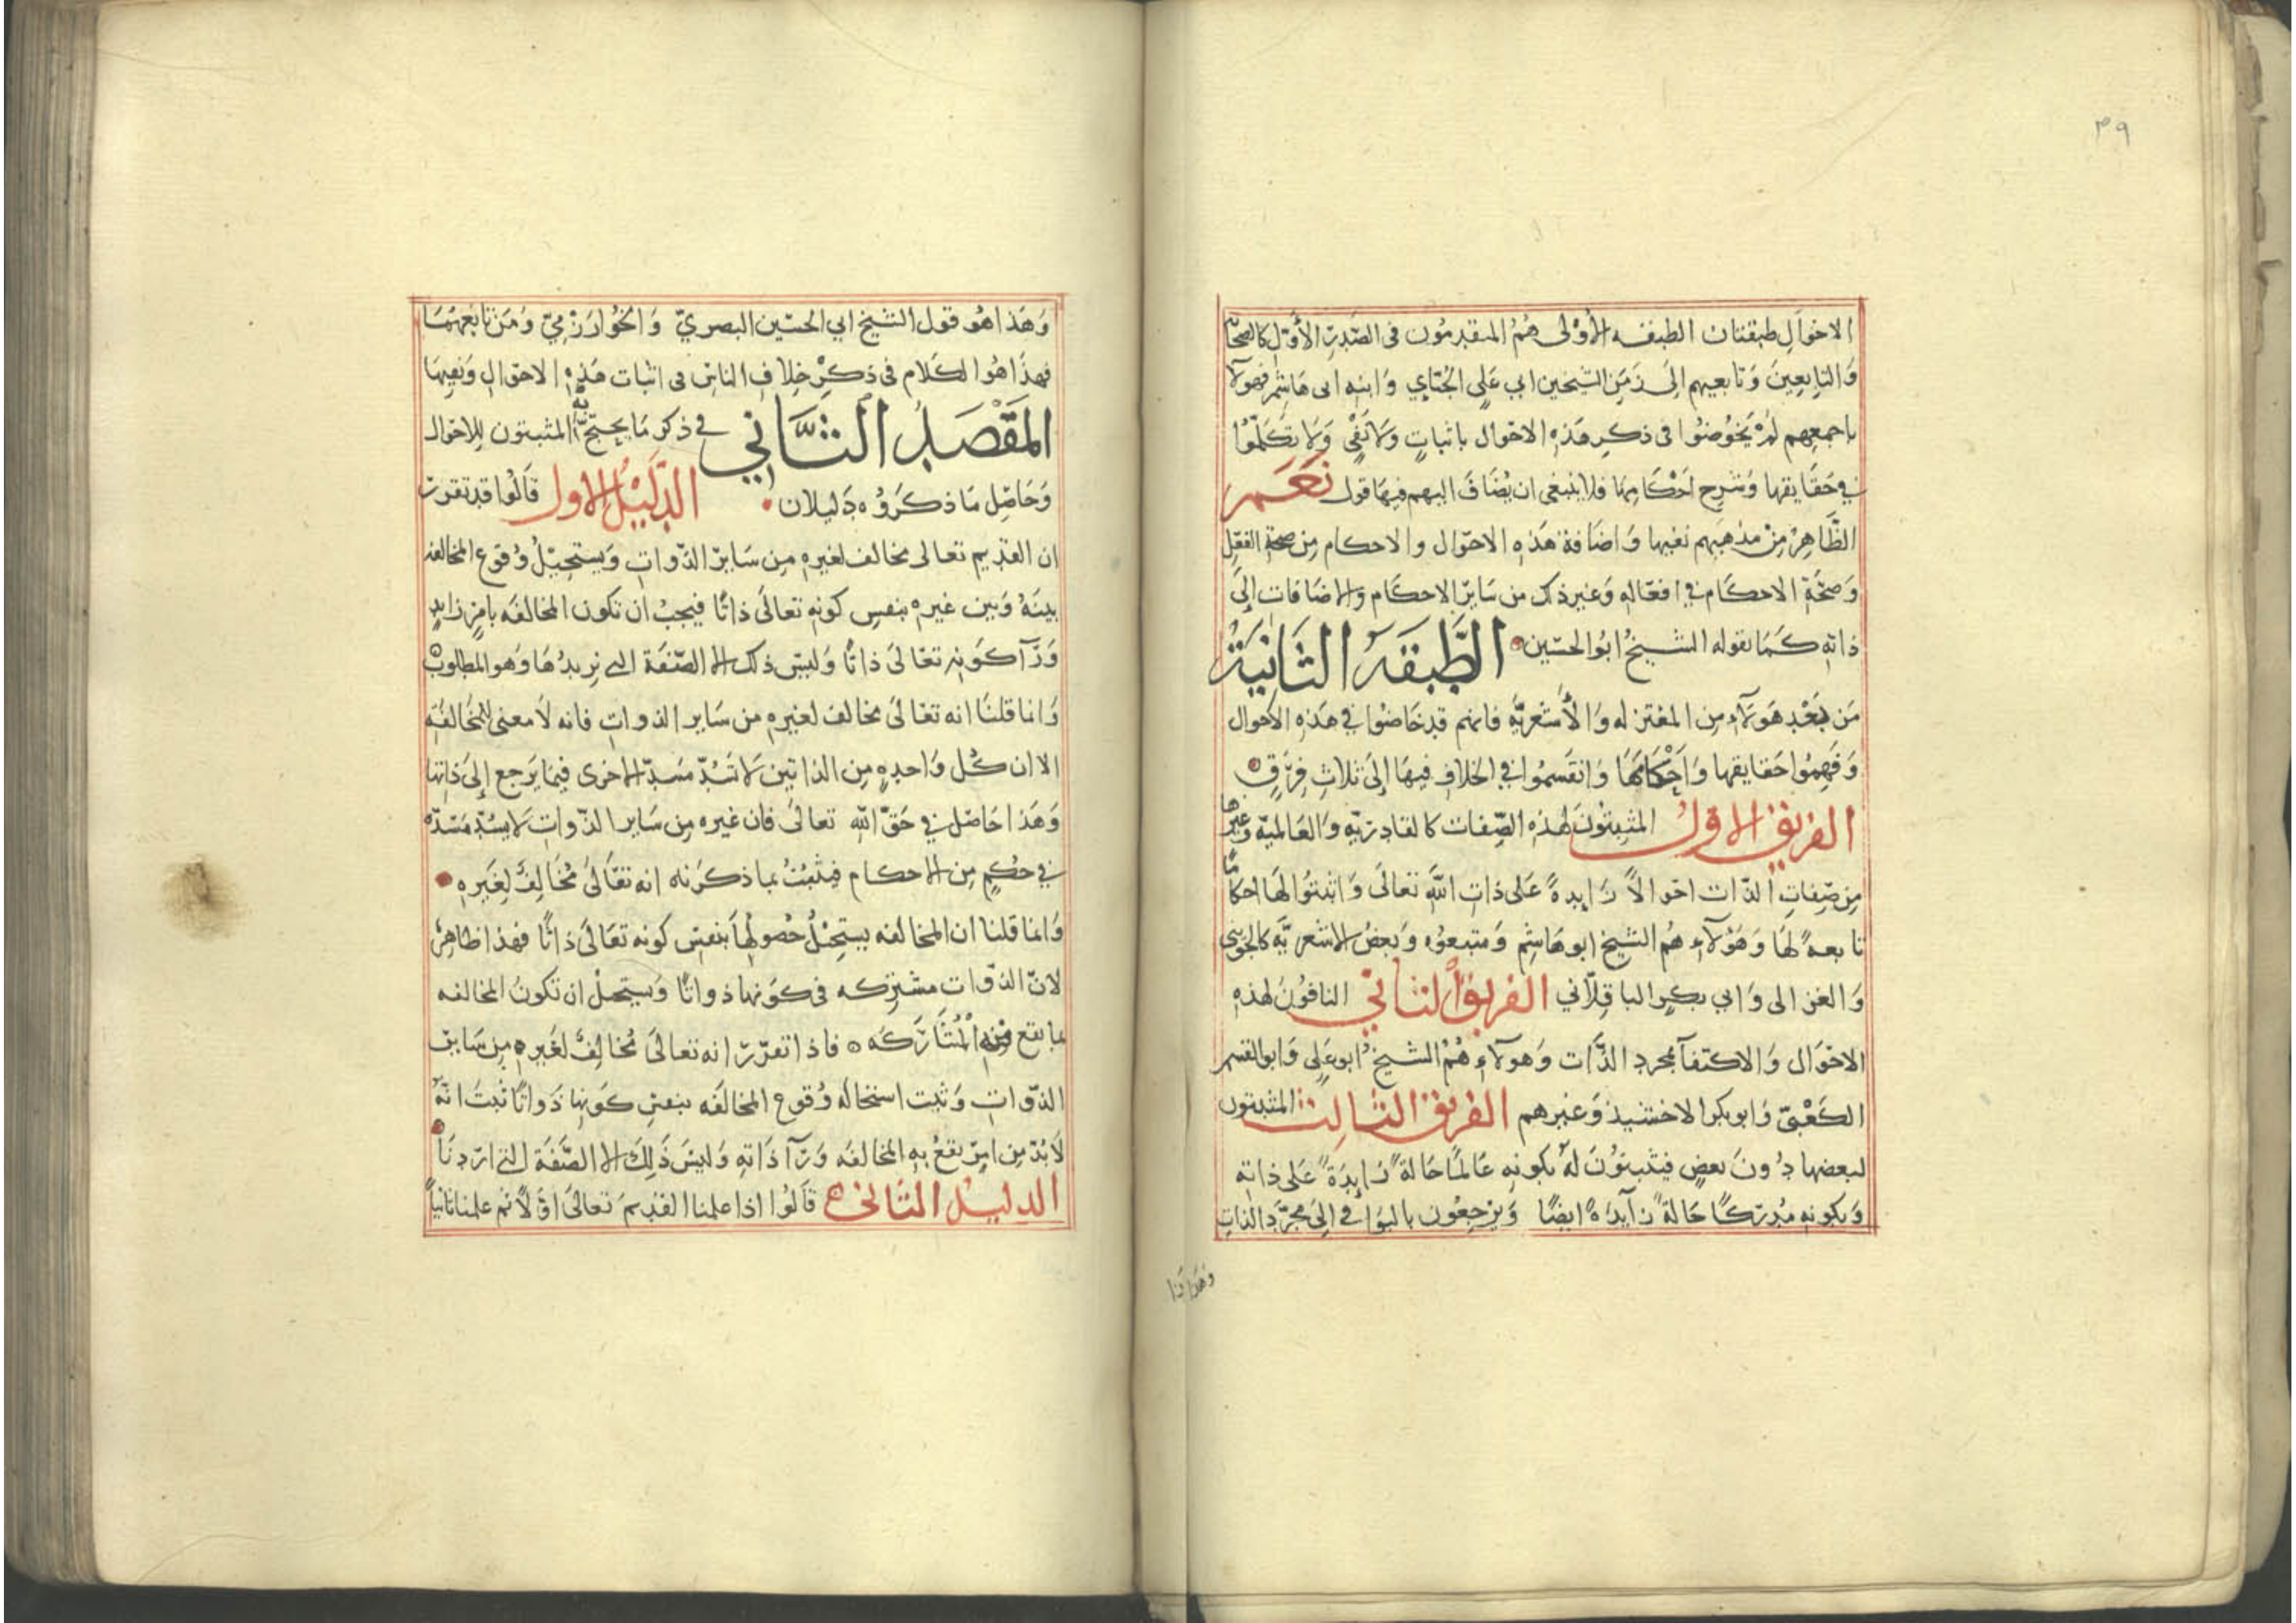 ٣٩
الاخوَالِ طبقتان الطبقه الأوْلى هُمُ المتقدمُون فى الصّدرِ الأوّل كالصحابه
وَالتابِعينَ وَتابعيهم الىَ زمَنِ الشيخين ابي عَلى الجُبّايِ وَابنِه ابى هَاشمٍ فهولآ
باجمعِهم لمْ يَخُوضُوا فى ذكرِ هَذهِ الاحوَال باثباتٍ ولاَ نَفْىٍ وَلا تكَلّمُوا
في حَقَايقها وَشرحِ احْكامِهَا فلا ينبغى ان يُضَافَ اليهم فيهَا قول نَعَمْ
الظّاهِرُ مِنْ مذهَبهم نفيها وَاضَافة هَذهِ الاحوَال والاحكام مِن صحةِ الفِعْلِ
وَصحّةِ الاحكام في افعَالِهِ وَغير ذلك من سَايرِ الاحكام والاضَافات اِلىَ
ذاتهِ كَمَا يقوله الشيخُ ابوُ الحسَين الطَّبقَةُ الثَانِيَةُ
مَن بَعْدِ هَولآءِ مِن المعْتزله وَالأشعريّه فانهم قد خَاضُوا في هَذهِ الأحوال
وَفَهِمُوا حَقايقها وَاحْكامَهَا وَانقَسموُا في الخلافِ فيهَا اِلىَ ثلاثِ فِرَقٍ
الفريق الاول المثبتُونَ لهذهِ الصِّفات كالقادريّه وَالعَالميّه وَغيرها
مِن صِفاتِ الذّات احوالاً زَايدهً عَلى ذاتِ اللّهَ تعالىَ وَاثبتوُا لهَا احكامًا
تابعهً لهَا وَهَؤلآءِ هُمُ الشيخ ابو هَاشِم وَمتبعوُه وَبعضُ الاشعريّه كالجوينى
وَالغزالى وَابي بكرٍ الباقِلاّني الفريقُ الثاني النافُونَ لهذهِ
الاحْوَال وَالاكتفآ بمجرد الذّات وَهولآءِ هُمُ الشيخ ابو عَلى وَابو القسم
الكَعْبىّ وَابو بكر الاخشيذ وَغيرهم الفريق الثالث المثبتون
لبعضها دُونَ بعضٍ فيثبتوُن لهُ بكونِه عَالماً حَالةً زايدَةً عَلى ذاتهِ
وَبكونهِ مُدركًا حَالةً زَآيدَهً ايضًا وَيرجعُون بالبوَاقي اِلىَ مجرّدِ الذاتِ
وهذا هو
وَهَذا هُو قول الشيخ ابي الحسَين البصريّ وَالخُوارَزْمِيّ وَمَن تابعَهُمَا
فهذا هُو الكَلام فى ذكرِ خلافِ الناسِ فى اثبات هَذهِ الاحوَالِ وَنفيهَا
المَقْصَدُ الثَّاني في ذكر مَا يحتجّ به المثبتون للاحوال
وَحَاصِل مَا ذكَرَوُه دَليلان الدَليْلُ الاول قالُوا قد تقررَ
ان القدِيم تعالى مخالف لغيرهِ مِن سَايرِ الذّواتِ وَيستحِيلُ وُقوع المخالفه
بينَهُ وَبين غيره بنفسِ كونهِ تعالىَ ذاتًا فيجبُ ان تكون المخالفَه بامرٍ زايدٍ
وَرَآ كَونهِ تعَالىَ ذاتًا وَليسَ ذلك الا الصّفَة التي نريدُهَا وَهو المطلوبُ
وَانما قلنَا انه تعَالىَ مخالف لغيرهِ من سَاير الذواتِ فانه لاَ معنى للمُخَالفَهِ
الا ان كُل وَاحدهٍ مِن الذاتين لا تسُدّ مَسَدّ الاخرى فيمَا يَرجع اِلىَ ذاتها
وَهَذا حَاصل في حَقّ اللّهِ تعالىَ فان غيره مِن سَاير الذّواتِ لا يسُدّ مَسَدّه
في حُكمٍ مِن الاحكام فيثبتُ بما ذكرَنه انه تعَالىَ مُخَالِفٌ لِغَيرهِ
وَانما قلنا ان المخالفه يستحِيلُ حُصولُهَا بنفسِ كونه تعَالىَ ذاتًا فهذا ظاهِرٌ
لانّ الذوّات مشتركه فى كوَنها ذواتًا وَيستحيلْ ان تكونَ المخالفه
بما يقع فيهِ الْمُشَارَكَه فاذا تقرّرَ انه تعالىَ مُخَالِفٌ لغَيرهِ مِن سَايرِ
الذّواتِ وَثبت استحالَهُ وُقوع المخالفَه بنفسِ كَونها ذَواتًا ثبتَ انّهُ
لاَبُدّ مِن امرٍ يقعُ بهِ المخالفَه وَرَآ ذَاتهِ وَليسَ ذَلِكَ الا الصِّفَة التي ارَدنَا
الدليلُ الثاني قَالوُا اذا علمنا القديمَ تعالىَ اوّلاً ثم علمنا ثانيًا